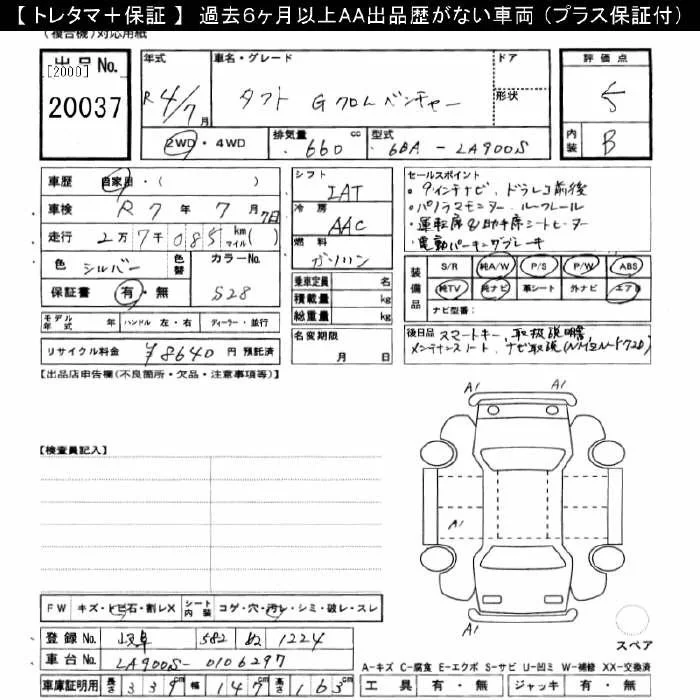 【 トレタマ＋保証 】 過去6ヶ月以上AA出品歴がない車両（プラス保証付）
(複合機)対応用紙
出品No. [2000] 20037
年式 R 4/7月
車名・グレード タフト Gクロムベンチャー
ドア 形状
評価点 5
内装 B
2WD・4WD
排気量 660 cc
型式 6BA - LA900S
車歴 自家用・( )
車検 R 7 年 7 月 7日
走行 2万7千085 km マイル( )
色 シルバー 色替 カラーNo. S28
保証書 有・無
モデル年式 年 ハンドル 左・右 ディーラー・並行
リサイクル料金 ¥8640 円 預託済
シフト IAT
冷房 AAC
燃料 ガソリン
乗車定員 名
積載量 kg
総重量 kg
名変期限 月 日
セールスポイント
・9インチナビ、ドラレコ前後
・パノラマモニター、ルーフレール
・運転席&助手席シートヒーター
・電動パーキングブレーキ
装備品 S/R 純A/W P/S P/W ABS
純TV 純ナビ 革シート 外ナビ エアB
ナビ型番：
後日品 スマートキー、取扱説明書、
メンテナンスノート、ナビ取説(NMZN-Y72D)
【出品店申告欄(不良箇所・欠品・注意事項等)】
【検査員記入】
A1 A1
A1
A1
FW キズ・トビ石・割レX シート内装 コゲ・穴・汚レ・シミ・破レ・スレ
登録No. 岐阜 582 ぬ 1224
車台No. LA900S-0106297
車庫証明用 長さ 339cm 幅 147cm 高さ 163cm
スペア
A-キズ C-腐食 E-エクボ S-サビ U-凹ミ W-補修 XX-交換済
工具 有・無 ジャッキ 有・無